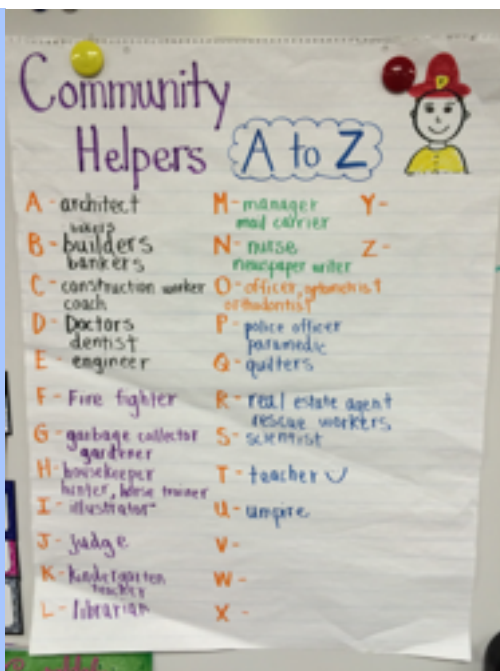 Community
Helpers A to Z
A - architect
bakers
B - builders
bankers
C - construction worker
coach
D - Doctors
dentist
E - engineer
F - Fire fighter
G - garbage collector
gardener
H - housekeeper
hunter, horse trainer
I - illustrator
J - judge
K - kindergarten
teacher
L - librarian
M - manager
mail carrier
N - nurse
newspaper writer
O - officer, optometrist
orthodontist
P - police officer
paramedic
Q - quilters
R - real estate agent
rescue workers
S - scientist
T - teacher
U - umpire
V -
W -
X -
Y -
Z -